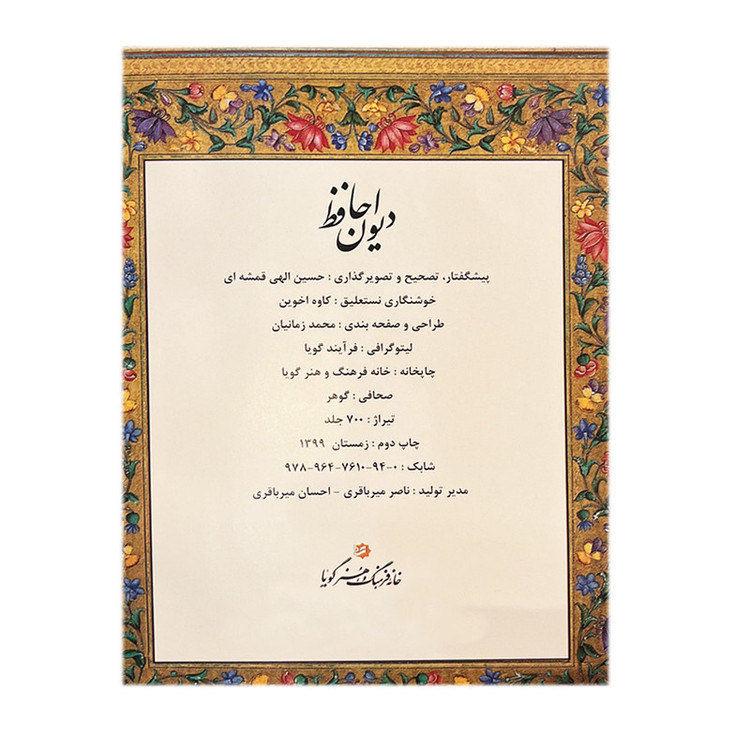 دیوان حافظ
پیشگفتار، تصحیح و تصویرگذاری : حسین الهی قمشه ای
خوشنگاری نستعلیق : کاوه اخوین
طراحی و صفحه بندی : محمد زمانیان
لیتوگرافی : فرآیند گویا
چاپخانه : خانه فرهنگ و هنر گویا
صحافی : گوهر
تیراژ : ۷۰۰ جلد
چاپ دوم : زمستان ۱۳۹۹
شابک : ۰-۹۴-۷۶۱۰-۹۶۴-۹۷۸
مدیر تولید : ناصر میرباقری - احسان میرباقری
خانه فرهنگ و هنر گویا